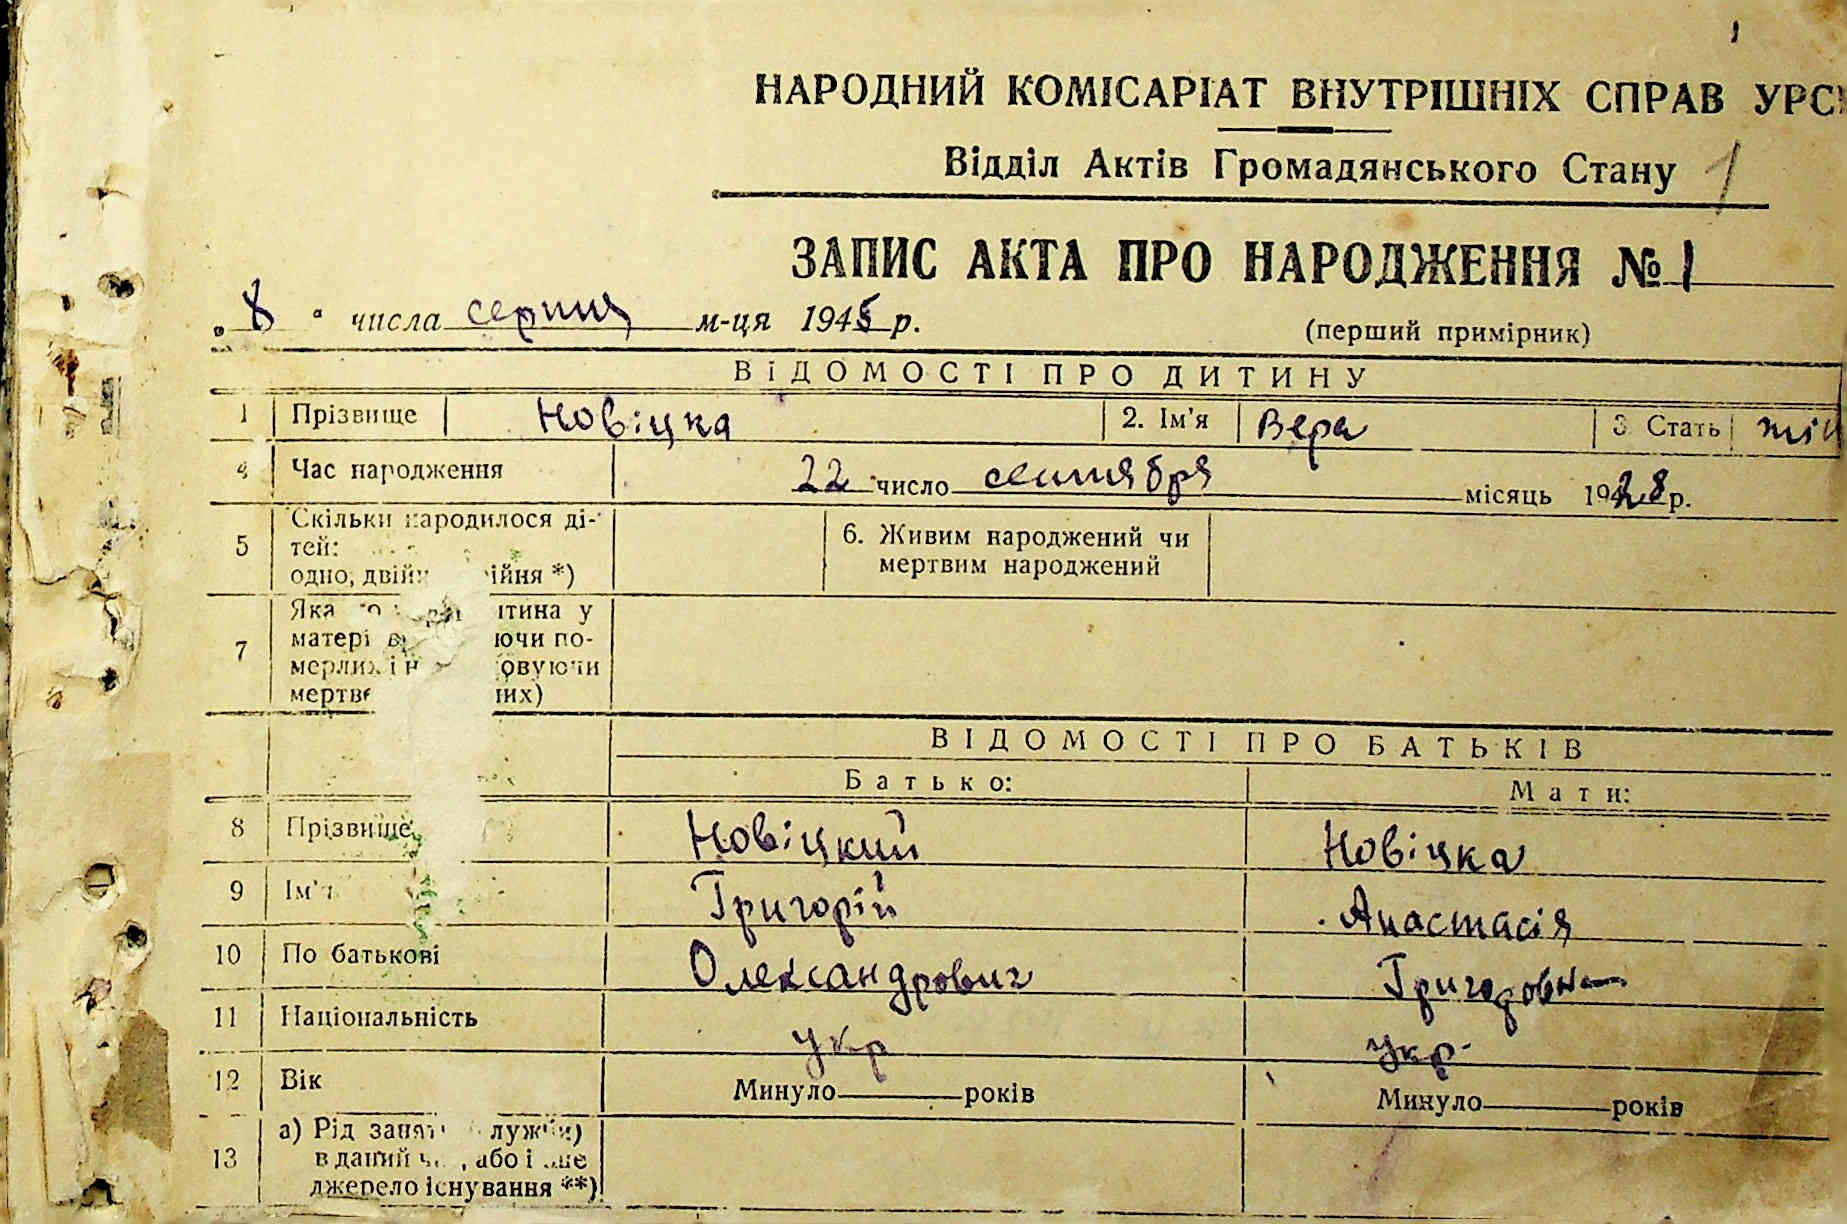 1
НАРОДНИЙ КОМІСАРІАТ ВНУТРІШНІХ СПРАВ УРС
Відділ Актів Громадянського Стану 1
ЗАПИС АКТА ПРО НАРОДЖЕННЯ № 1
„8“ числа серпня м-ця 1945 р. (перший примірник)
ВІДОМОСТІ ПРО ДИТИНУ
1 Прізвище Новіцка 2. Ім'я Вера 3 Стать жін
4 Час народження 22 число сентября місяць 1928 р.
5 Скільки народилося ді-
тей: 6. Живим народжений чи
одно, двій ійня *) мертвим народжений
Яка итина у
7 матері ючи по-
мерлих і н овуючи
мертв их)
ВІДОМОСТІ ПРО БАТЬКІВ
Батько: Мати:
8 Прізвище Новіцкий Новіцка
9 Ім'я Григорій Анастасія
10 По батькові Олександрович Григоровна
11 Національність укр укр.
12 Вік Минуло років Минуло років
а) Рід занят служби)
13 в даний ч , або інше
джерело існування **)